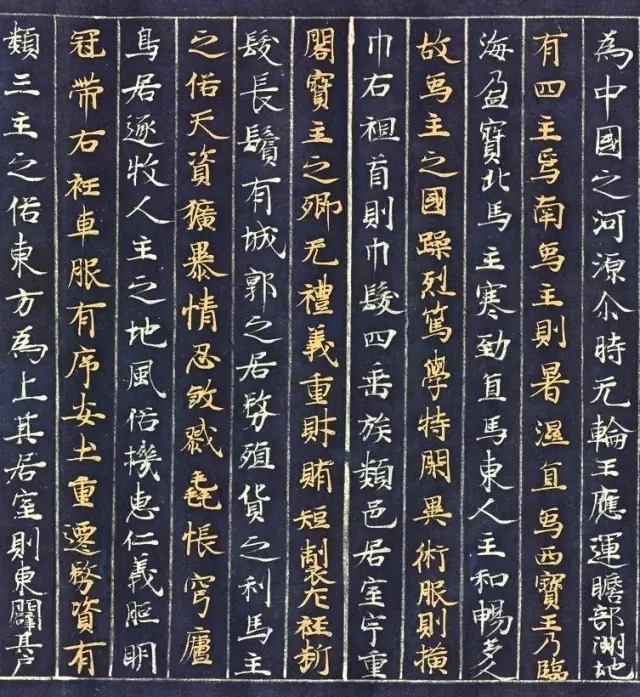 為中國之河源尒時无輪王應運瞻部洲地
有四主焉南象主則暑濕宜象西寶主乃臨
海盈寶北馬主寒勁宜馬東人主和暢多人
故象主之國躁烈篤學特閑異術服則橫
巾右袒首則巾髮四垂族類邑居室宇重
閣寶主之鄉无禮義重財賄短製左衽斷
髮長鬢有城郭之居務殖貨之利馬主
之俗天資獷暴情忍煞戮毳帳穹廬
鳥居逐牧人主之地風俗機惠仁義照明
冠帶右衽車服有序安土重遷務資有
類三主之俗東方為上其居室則東闢其户